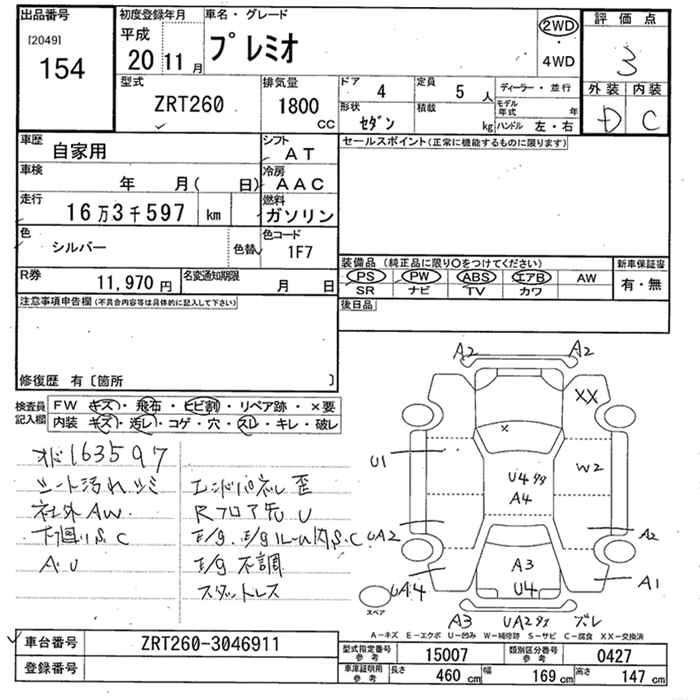 出品番号 初度登録年月 車名・グレード 評価点
[2049] 154
平成 20 11 月 プレミオ 2WD ・ 4WD 3
型式 ZRT260 排気量 1800 CC
ドア 4 定員 5 人 ディーラー・並行 外装 内装
形状 セダン 積載 kg モデル年式 年 ハンドル 左・右 D C
車歴 自家用 シフト AT セールスポイント(正常に機能するものに限ります)
車検 年 月( 日) 冷房 AAC
走行 16万3千597 km 燃料 ガソリン
色 シルバー 色替 色コード 1F7
装備品(純正品に限り○をつけてください) 新車保証書
R券 11,970 円 名変通知期限 月 日
PS PW ABS エアB AW 有・無
SR ナビ TV カワ
注意事項申告欄(不具合内容等は具体的に記入して下さい) 後日品
修復歴 有〔箇所 〕
検査員記入欄 FW キズ・飛石・ヒビ割・リペア跡・×要
内装 キズ・汚レ・コゲ・穴・スレ・キレ・破レ
オド163597
シート汚れシミ エンドパネル歪
社外AW Rフロア先U
下廻りS.C E/g.E/gルーム内S.C
AU E/g不調
スタットレス
A2 A2
XX
×
U1 W2
U4 タタ
A4
UA2 A2
A3
UA4 U4 A1
スペア
A3 UA2タタ ズレ
A−キズ E−エクボ U−凹み W−補修跡 S−サビ C−腐食 XX−交換済
車台番号 ZRT260-3046911
型式指定番号参考 15007 類別区分番号参考 0427
登録番号
車庫証明用参考 長さ 460 cm 幅 169 cm 高さ 147 cm